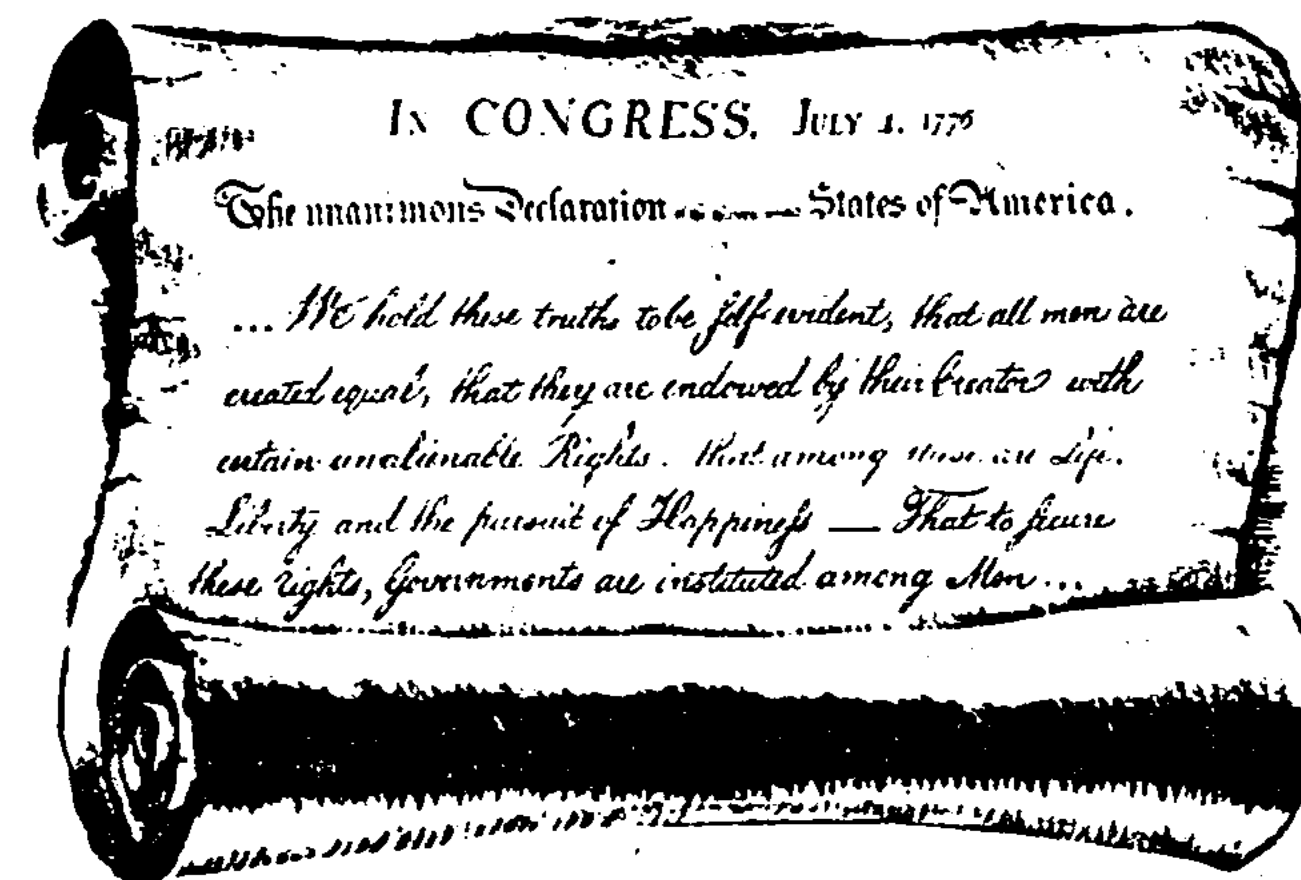 IN CONGRESS. JULY 4. 1776
The unanimous Declaration States of America.
... We hold these truths to be self-evident, that all men are
created equal, that they are endowed by their Creator with
certain unalienable Rights. that among these are Life.
Liberty and the pursuit of Happiness — That to secure
these rights, Governments are instituted among Men ...